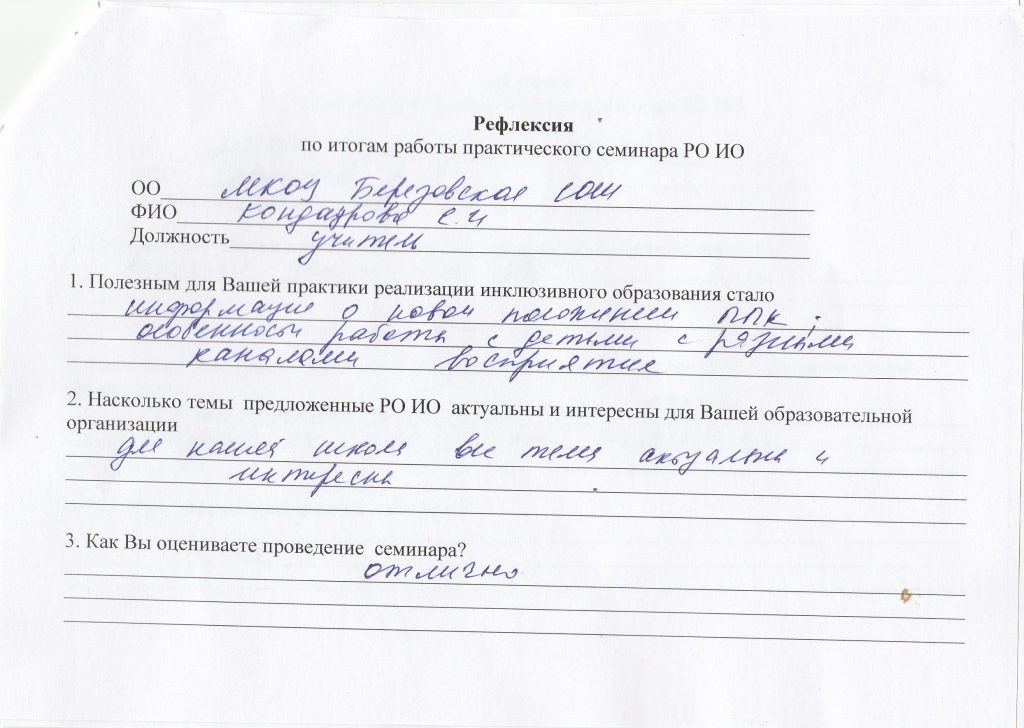 Рефлексия
по итогам работы практического семинара РО ИО
ОО МКОУ Березовская СОШ
ФИО Кондаурова С.И
Должность учитель
1. Полезным для Вашей практики реализации инклюзивного образования стало
информация о новом положении ППк ;
особенности работы с детьми с разными
каналами восприятие
2. Насколько темы предложенные РО ИО актуальны и интересны для Вашей образовательной
организации
для нашей школы все темы актуальны и
интересны
3. Как Вы оцениваете проведение семинара?
отлично